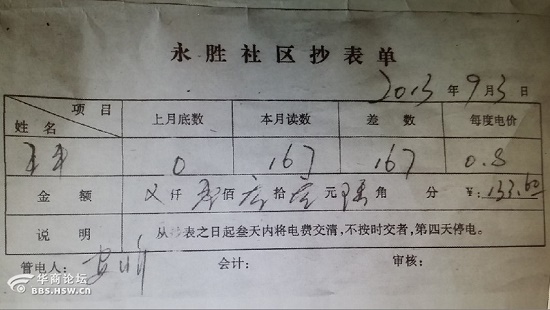 永胜社区抄表单
2013年9月3日
项目 姓名 上月底数 本月读数 差数 每度电价
0 167 167 0.8
金额 仟 佰 拾 元 角 分 ¥:133.60
说明 从抄表之日起叁天内将电费交清,不按时交者,第四天停电。
管电人: 会计: 审核:
华商论坛
BBS.HSW.CN